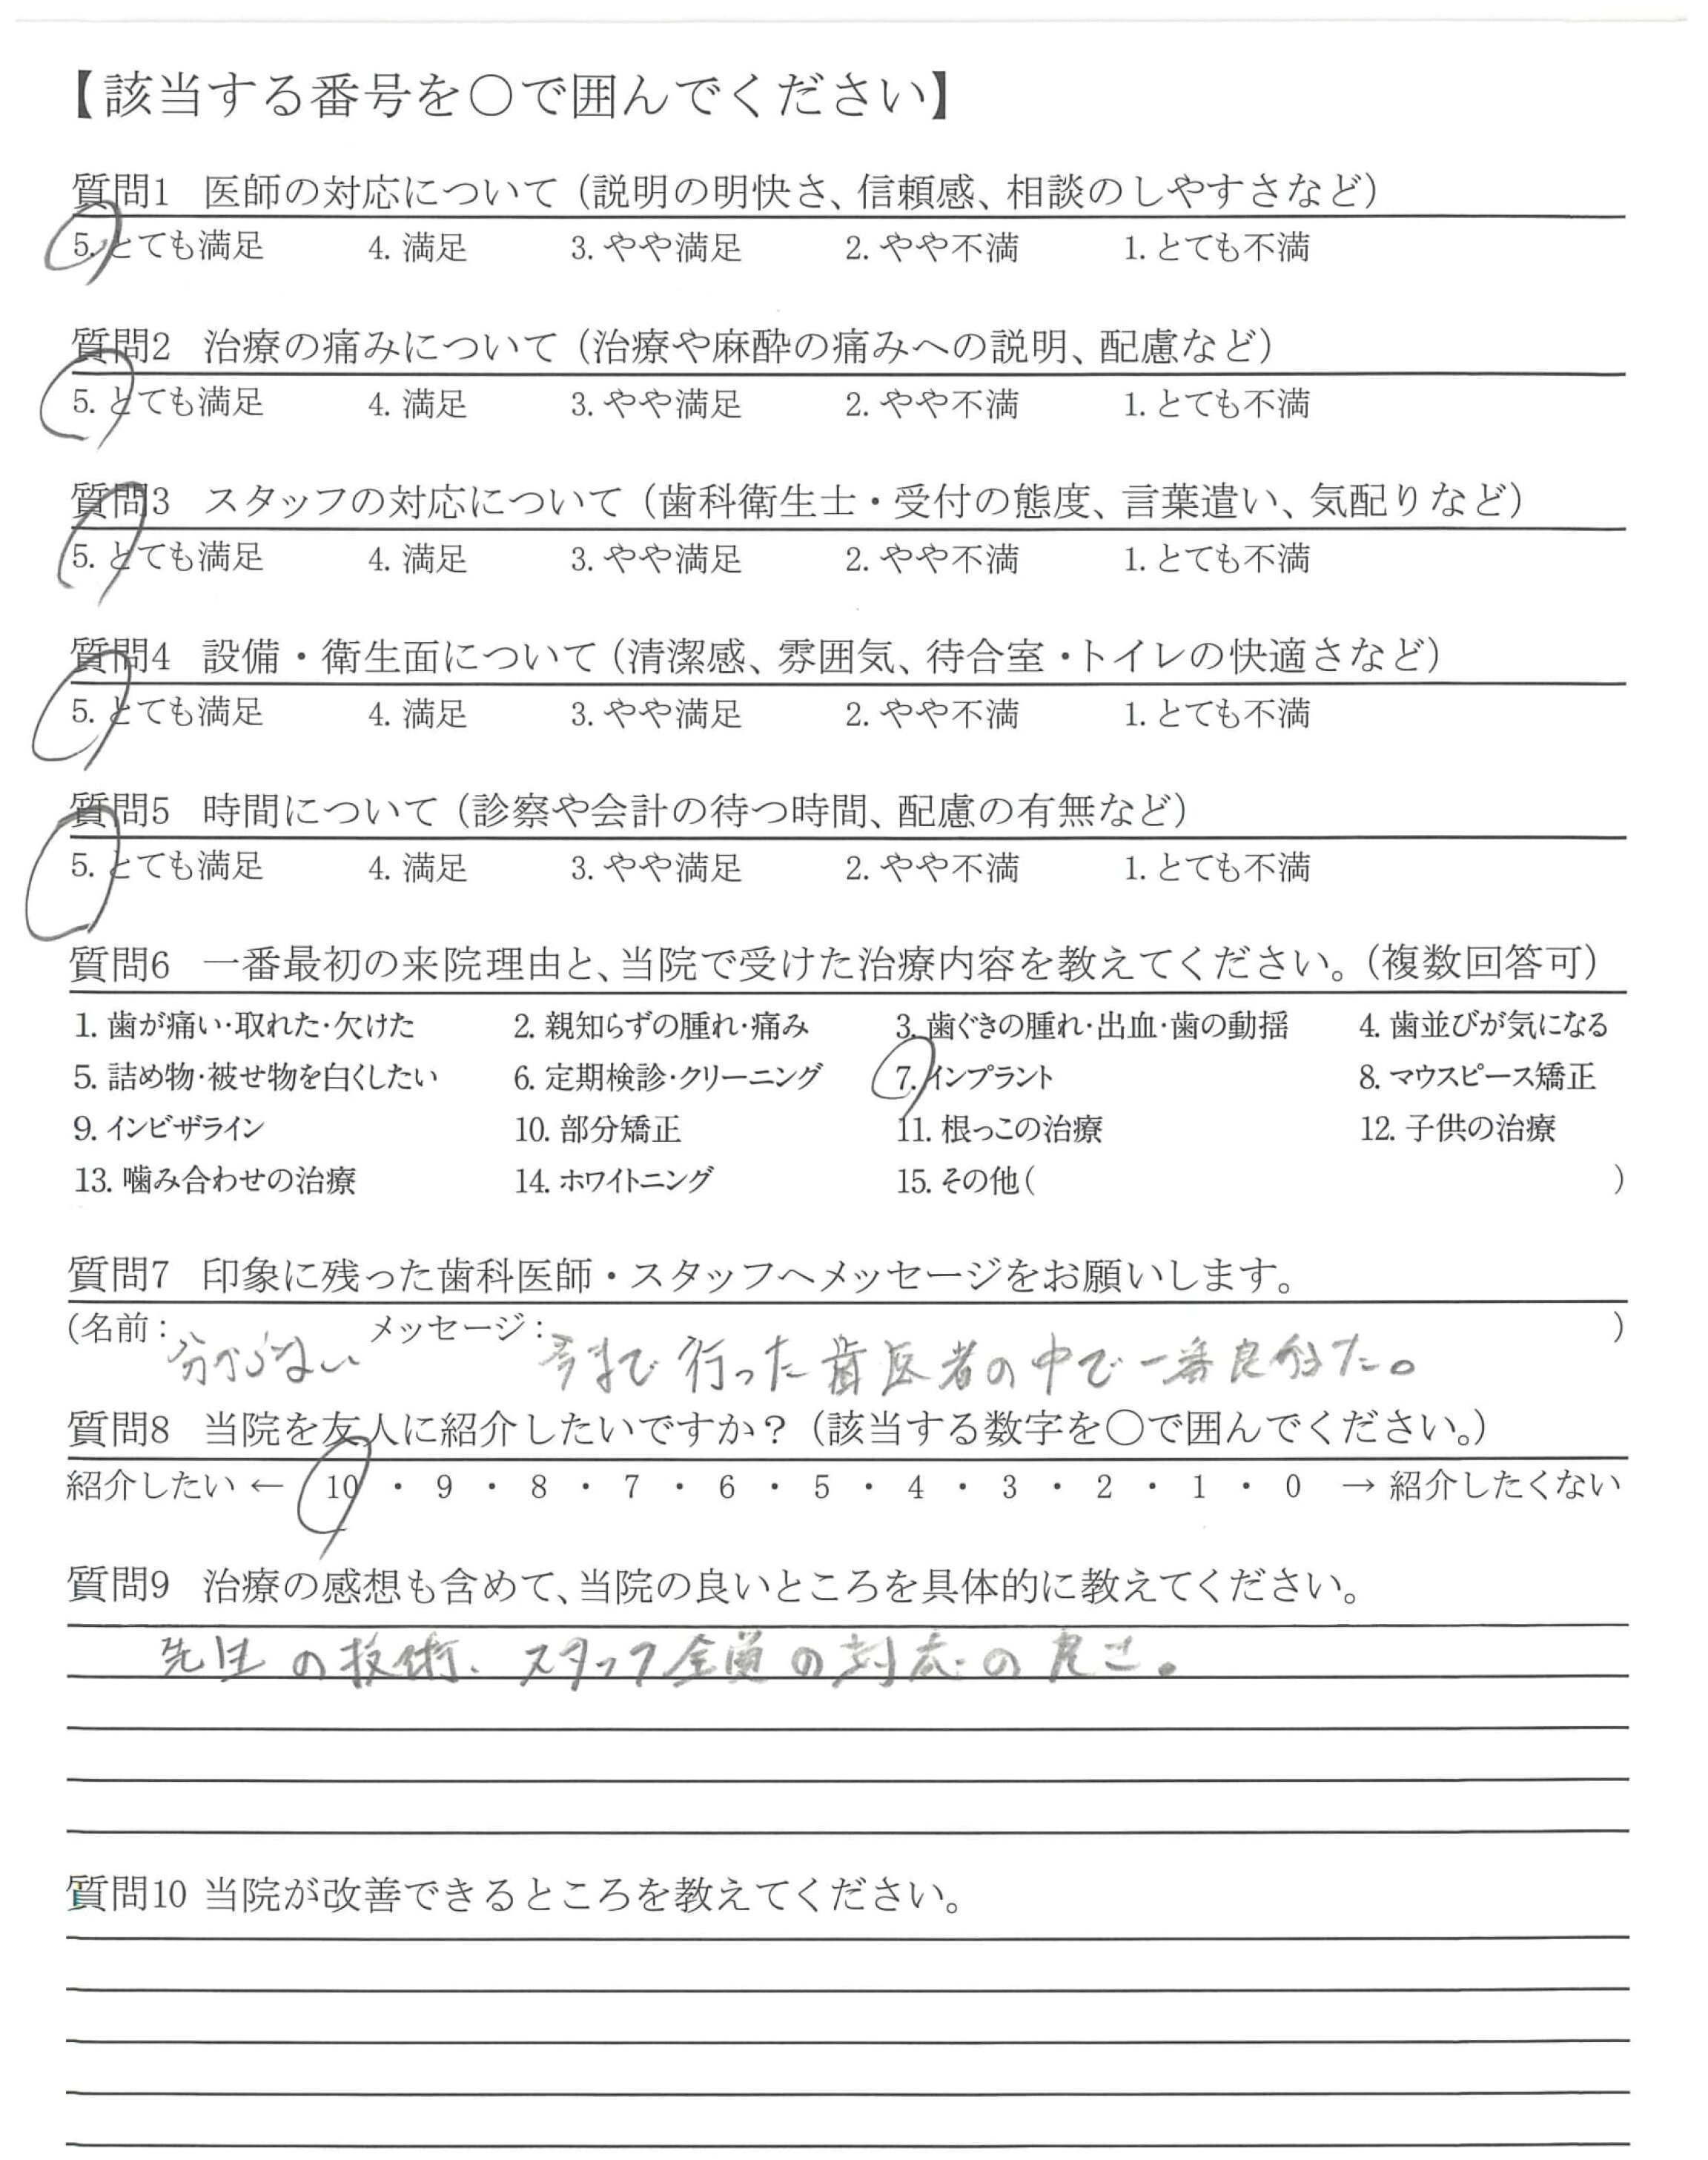 【該当する番号を○で囲んでください】
質問1 医師の対応について（説明の明快さ、信頼感、相談のしやすさなど）
5. とても満足 4. 満足 3. やや満足 2. やや不満 1. とても不満
質問2 治療の痛みについて（治療や麻酔の痛みへの説明、配慮など）
5. とても満足 4. 満足 3. やや満足 2. やや不満 1. とても不満
質問3 スタッフの対応について（歯科衛生士・受付の態度、言葉遣い、気配りなど）
5. とても満足 4. 満足 3. やや満足 2. やや不満 1. とても不満
質問4 設備・衛生面について（清潔感、雰囲気、待合室・トイレの快適さなど）
5. とても満足 4. 満足 3. やや満足 2. やや不満 1. とても不満
質問5 時間について（診察や会計の待つ時間、配慮の有無など）
5. とても満足 4. 満足 3. やや満足 2. やや不満 1. とても不満
質問6 一番最初の来院理由と、当院で受けた治療内容を教えてください。（複数回答可）
1. 歯が痛い・取れた・欠けた 2. 親知らずの腫れ・痛み 3. 歯ぐきの腫れ・出血・歯の動揺 4. 歯並びが気になる
5. 詰め物・被せ物を白くしたい 6. 定期検診・クリーニング 7. インプラント 8. マウスピース矯正
9. インビザライン 10. 部分矯正 11. 根っこの治療 12. 子供の治療
13. 噛み合わせの治療 14. ホワイトニング 15. その他（ ）
質問7 印象に残った歯科医師・スタッフへメッセージをお願いします。
（名前： メッセージ： ）
分からない 今まで行った歯医者の中で一番良かった。
質問8 当院を友人に紹介したいですか？（該当する数字を○で囲んでください。）
紹介したい ← 10 ・ 9 ・ 8 ・ 7 ・ 6 ・ 5 ・ 4 ・ 3 ・ 2 ・ 1 ・ 0 → 紹介したくない
質問9 治療の感想も含めて、当院の良いところを具体的に教えてください。
先生の技術、スタッフ全員の対応の良さ。
質問10 当院が改善できるところを教えてください。